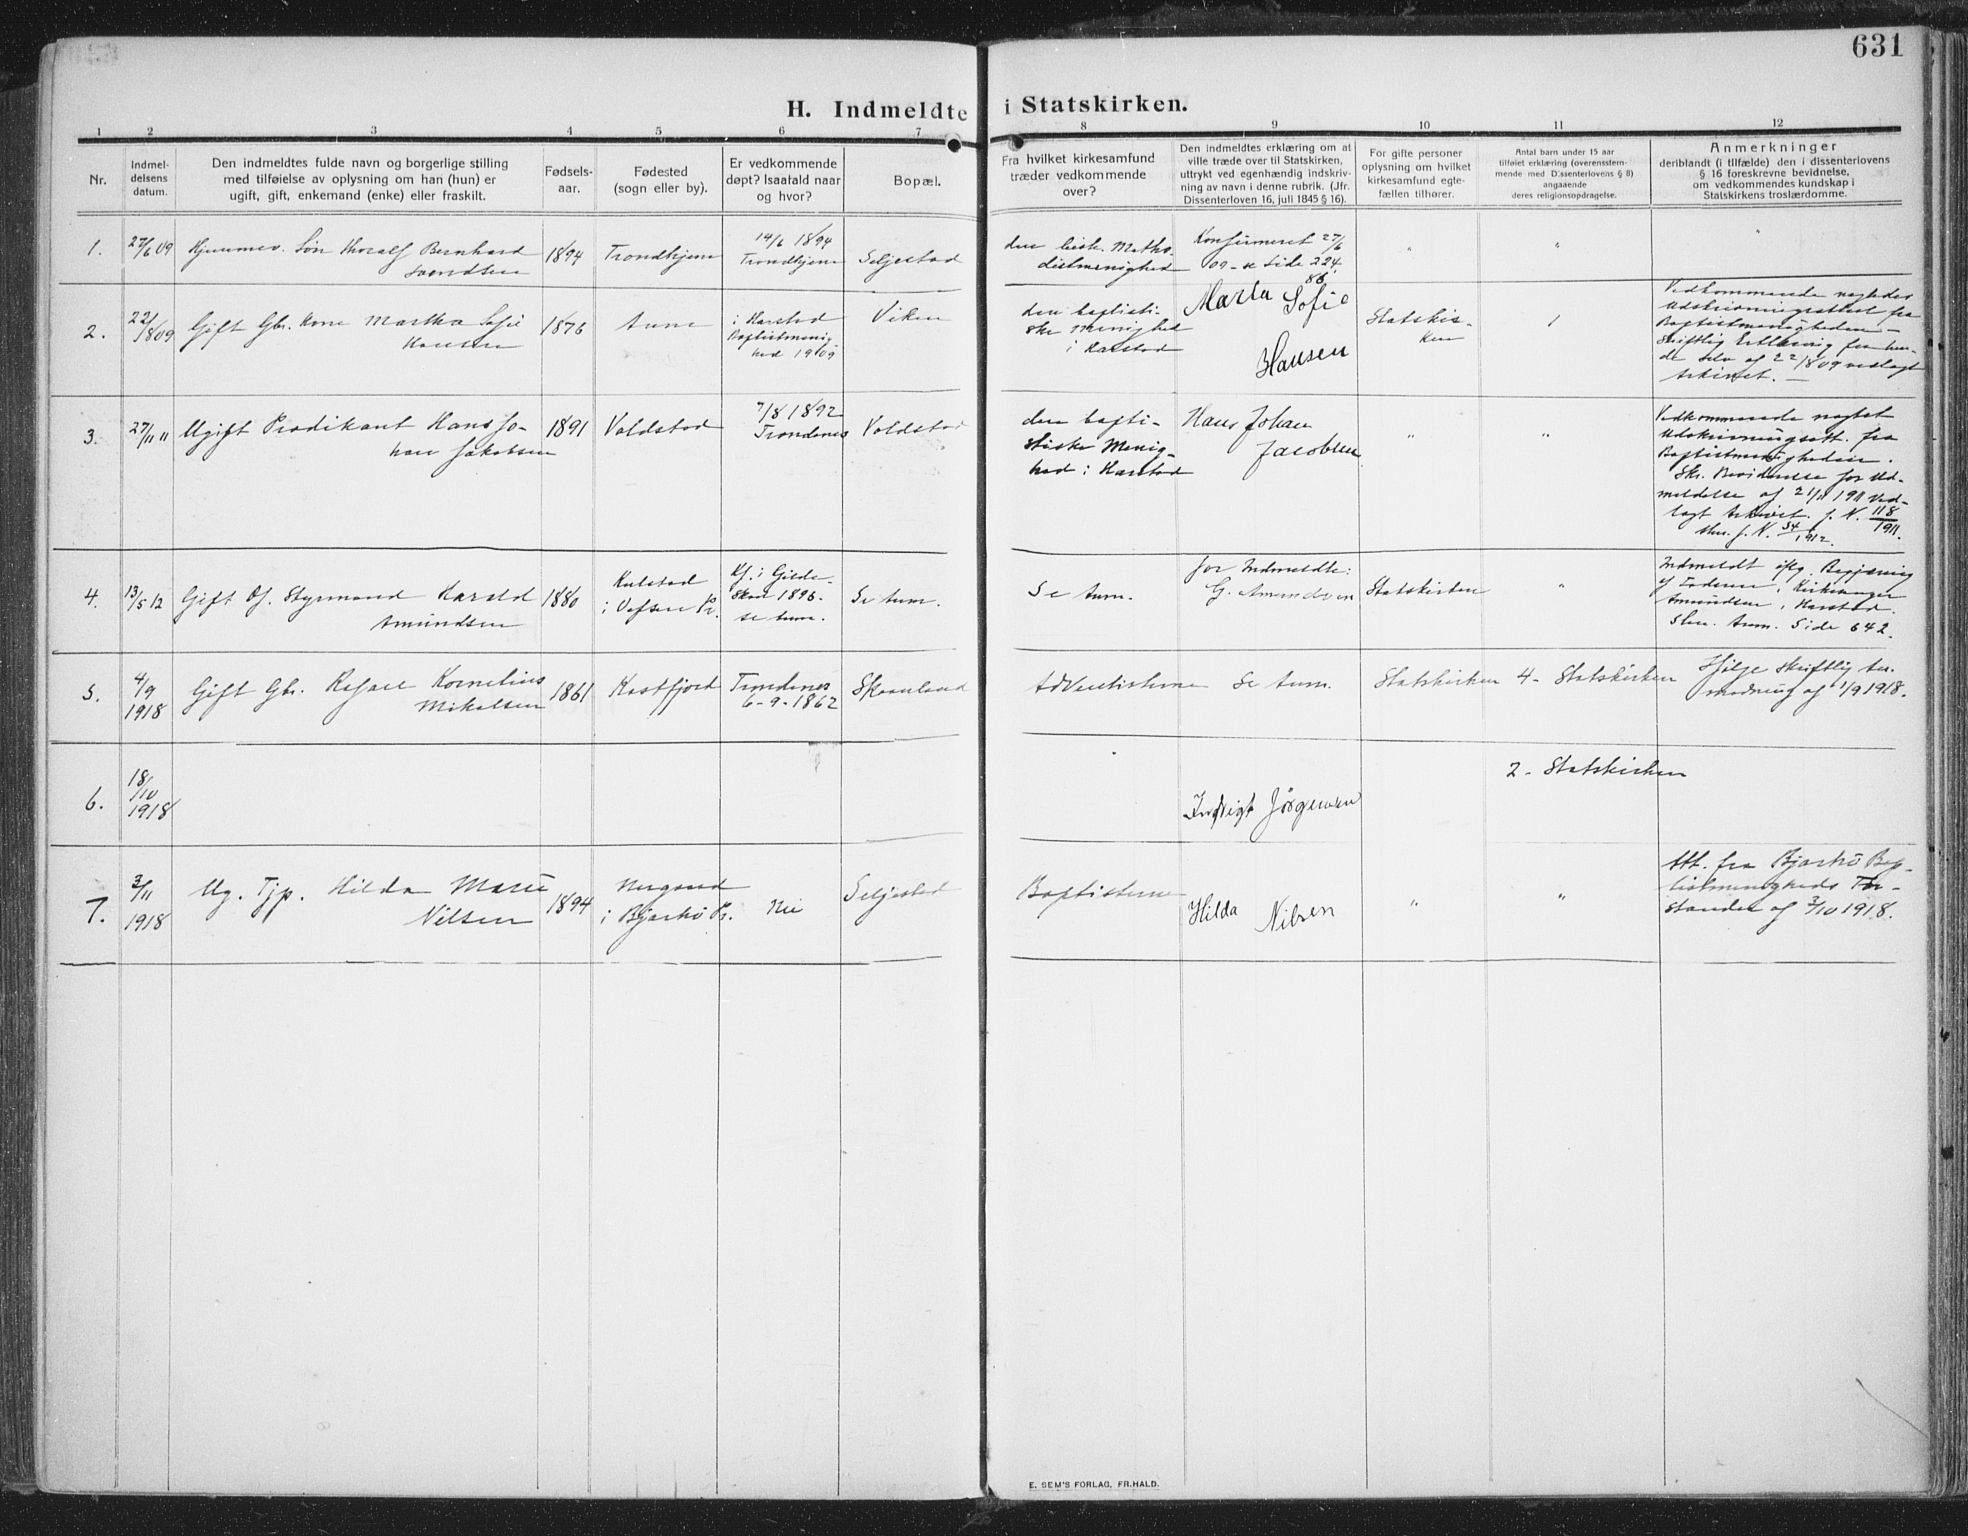 631
H. Indmeldte i Statskirken.
1 2 3 4 5 6 7 8 9 10 11 12
Nr.
Indmel-
delsens
datum.
Den indmeldtes fulde navn og borgerlige stilling
med tilføielse av oplysning om han (hun) er
ugift, gift, enkemand (enke) eller fraskilt.
Fødsels-
aar.
Fødested
(sogn eller by).
Er vedkommende
døpt? Isaafald naar
og hvor?
Bopæl.
Fra hvilket kirkesamfund
træder vedkommende
over?
Den indmeldtes erklæring om at
ville træde over til Statskirken,
uttrykt ved egenhændig indskriv-
ning av navn i denne rubrik. (Jfr.
Dissenterloven 16, juli 1845 § 16).
For gifte personer
oplysning om hvilket
kirkesamfund egte-
fællen tilhører.
Antal barn under 15 aar
tilføiet erklæring (overensstem-
mende med Dissenterlovens § 8)
angaaende
deres religionsopdragelse.
Anmerkninger
deriblandt (i tilfælde) den i dissenterlovens
§ 16 foreskrevne bevidnelse,
om vedkommendes kundskap i
Statskirkens troslærdomme.
1.
27/6 09
Hjemmev. Søn Thoralf Bernhard
Svendsen
1894
Trondhjem
14/6 1894
Trondhjem
Seljestad
den bisk. Metho-
distmenighed
Konfirmeret 27/6
09 - se Side 224
86.
"
"
"
2.
22/8 09
Gift Gbr. kone Martha Sofie
Hansen
1876
Aune
i Harstad
Baptistmenig-
hed 1909
Viken
den baptisti-
ske Menighed
i Harstad
Marta Sofie
Hansen
Statskir-
ken
1
Vedkommende nægtedes
Udskrivningsattest fra
Baptistmenigheden -
Skriftlig Erklæring fra hen-
de selv af 22/8 09 vedlagt
Arkivet. -
3.
27/11 11
Ugift Prædikant Hans Jo-
han Jakobsen
1891
Voldstad
7/8 1892
Trondenes
Voldstad
den bapti-
stiske Menig-
hed i Harstad
Hans Johan
Jacobsen
"
"
Vedkommende nægtet
Udskrivningsatt. fra
Baptistmenigheden.
Skr. Bevidnelse for Ud-
meldelse af 21/11 1911 ved-
lagt Arkivet. j. N. 118/1911.
j. N. 34/1912.
4.
13/5 12
Gift Styrmand Harald
Amundsen
1880
Kulstad
i Vefsen Pr.
Kf. i Gilde-
skaal 1896.
se Anm.
Se Anm.
Se Anm.
for Indmeldte:
G. Amundsen
Statskirken
"
Indmeldt Begjæring
af Faderen, Kirkesanger
Amundsen, Harstad.
Anm. Side 642.
5.
4/9
1918
Gift Gbr. Rafael Kornelius
Mikalsen
1861
Kastfjord
Trondenes
6-9-1862
Skaanland
Adventisterne
Se Anm.
Statskirken
4 - Statskirken
Ifølge skriftlig An-
modning af 1/9 1918.
6.
18/10
1918
Ingvigt Jørgensen
2 - Statskirken
7.
3/11
1918
Ug. Tjp. Hilda Marie
Nilsen
1894
i Bjarkø Pr.
Nei
Seljestad
Baptisterne
Hilda Nilsen
"
"
Att. fra Bjarkø Bap-
tistmenigheds For-
stander af 3/10 1918.
E. SEM'S FORLAG, FR.HALD.